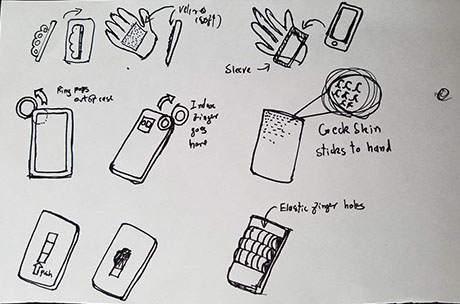 Velcro
(soft)
Sleeve
Ring pops
out of case
Index
finger
goes
here
Geck Skin
sticks to hand
Push
Elastic finger holes